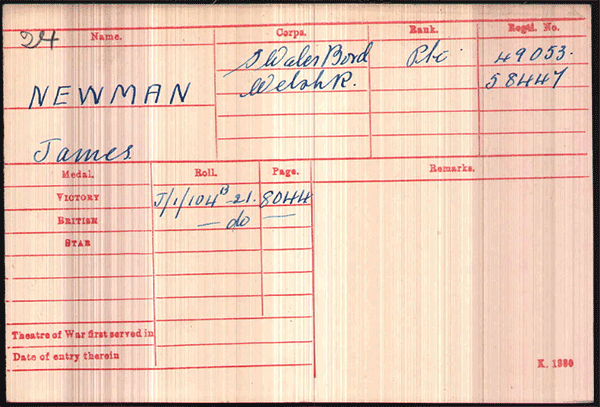 24 Name. Corps. Rank. Regtl. No.
S Wales Bord Pte 49053.
NEWMAN Welsh R. 58447
James
Medal. Roll. Page. Remarks.
VICTORY J/1/104B 21. 8044
BRITISH — do —
STAR
Theatre of War first served in
Date of entry therein
K. 1380